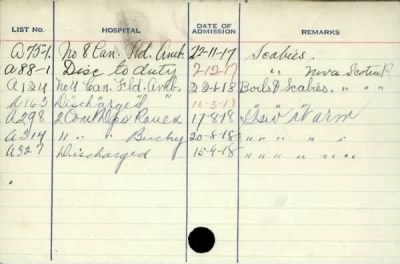 LIST No. HOSPITAL DATE OF ADMISSION REMARKS
A75-1. No 8 Can. Fld. Amb. 22-11-17 Scabies.
A88-1 Disc to duty 7-12-17 " Nova Scotia R
A124 No 4 Can. Fld. Amb. 2-2-18 Boils & Scabies. " " "
A163 Discharged " 16-3-18 " " " "
A298 2 Con Depo Rouen 17-8-18 G S W Arm
A314 " " Buchy 20-8-18 " " " " "
A327 Discharged 15-9-18 " " " " " "